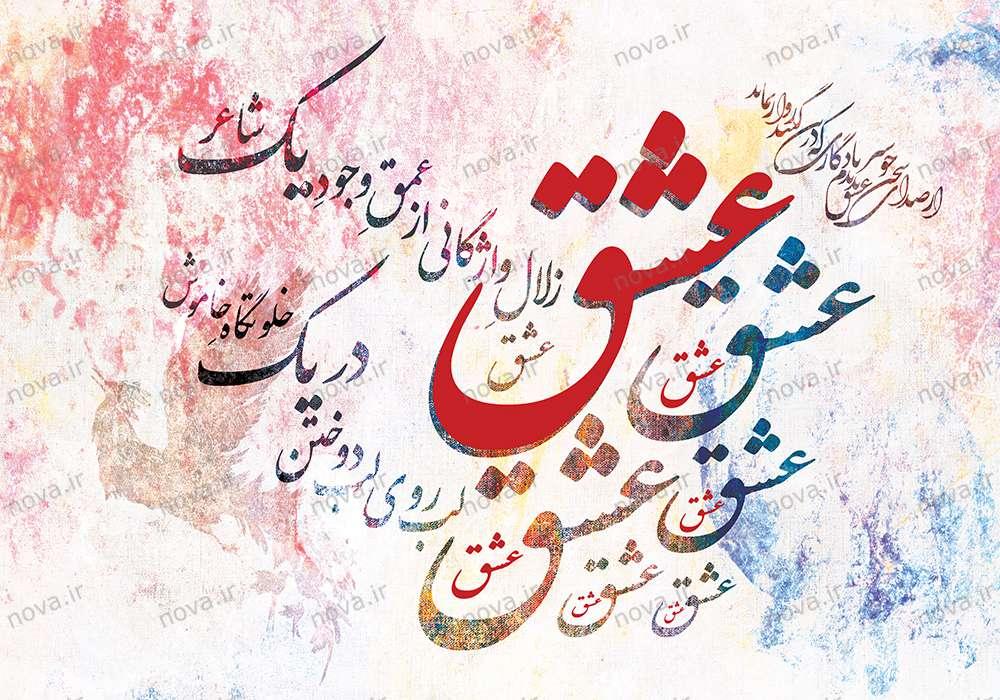 از صدای سخن عشق ندیدم خوشتر
یادگاری که در این گنبد دوار بماند
عشق
عشق
عشق
عشق
زلال واژگانی از عمق وجودِ یک شاعر
عشق
در یک خلوتگاه خاموش
لب روی لب دوختن
عشق
عشق
عشق
عشق
عشق
عشق
عشق
عشق
nova.ir